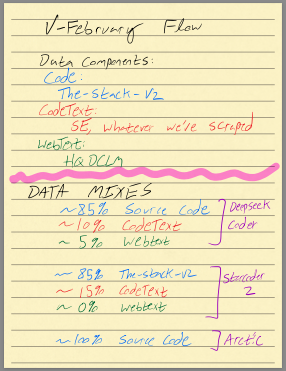 V-February Flow
Data Components:
Code:
The-Stack-V2
CodeText:
SE, whatever we're scraped
WebText:
HQ DCLM
DATA MIXES
~85% Source Code
~10% CodeText
~5% Webtext
Deepseek
Coder
~85% The-stack-V2
~15% CodeText
~0% Webtext
Starcoder
2
~100% Source Code
Arctic